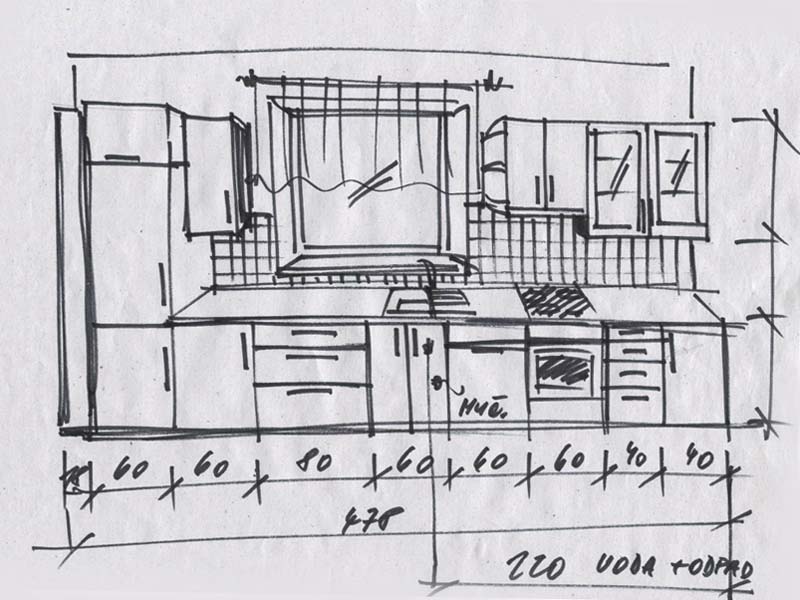 MYČ.
18 60 60 80 60 60 60 40 40
478
220 VODA + ODPAD